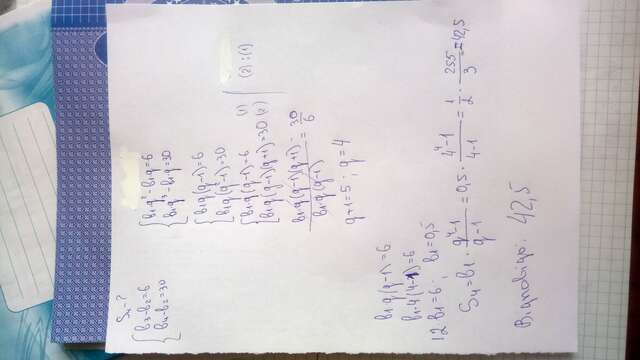 S₄ - ?
{ b₃ - b₂ = 6
{ b₄ - b₂ = 30
{ b₁q² - b₁q = 6
{ b₁q³ - b₁q = 30
{ b₁q(q-1) = 6
{ b₁q(q²-1) = 30
{ b₁q(q-1) = 6 (1)
{ b₁q(q-1)(q+1) = 30 (2) | (2) : (1)
b₁q(q-1)(q+1) / b₁q(q-1) = 30/6
q+1 = 5 ; q = 4
b₁q(q-1) = 6
b₁·4(4-1) = 6
12b₁ = 6 ; b₁ = 0,5
S₄ = b₁ · (q⁴-1)/(q-1) = 0,5 · (4⁴-1)/(4-1) = 1/2 · 255/3 = 42,5
Відповідь: 42,5